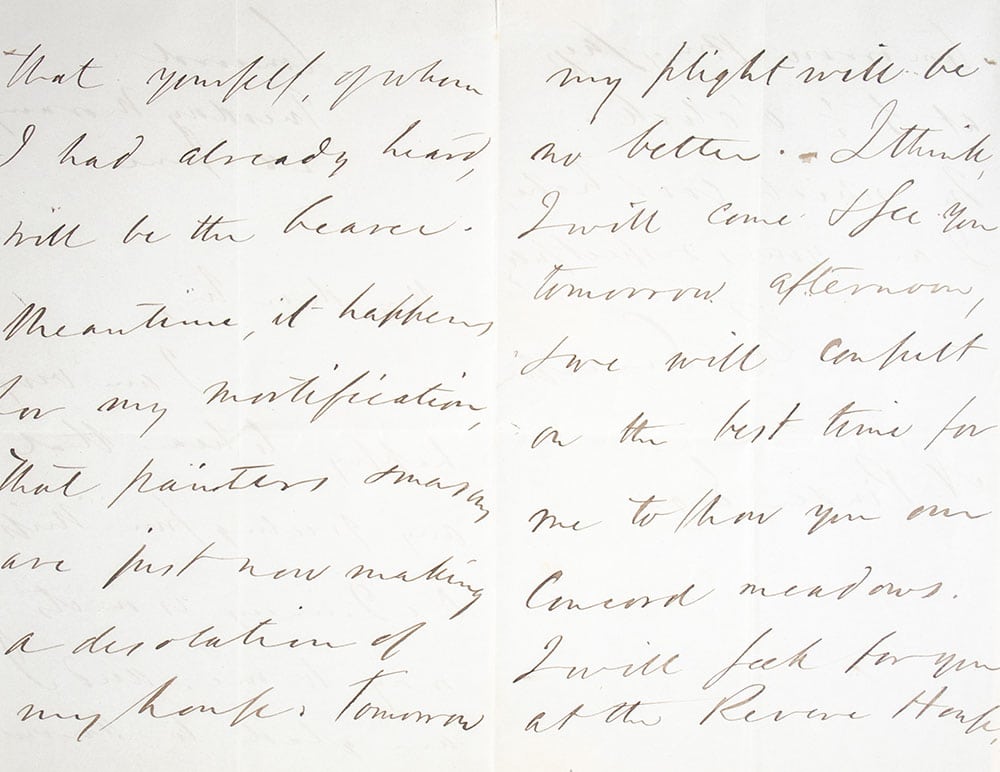 that yourself, of whom
I had already heard,
will be the bearer.
Meantime, it happens
for my mortification,
that painters & masons
are just now making
a desolation of
my house. Tomorrow
my plight will be
no better. - I think,
I will come & see you
tomorrow afternoon,
& we will consult
on the best time for
me to show you our
Concord meadows.
I will seek for you
at the Revere House,